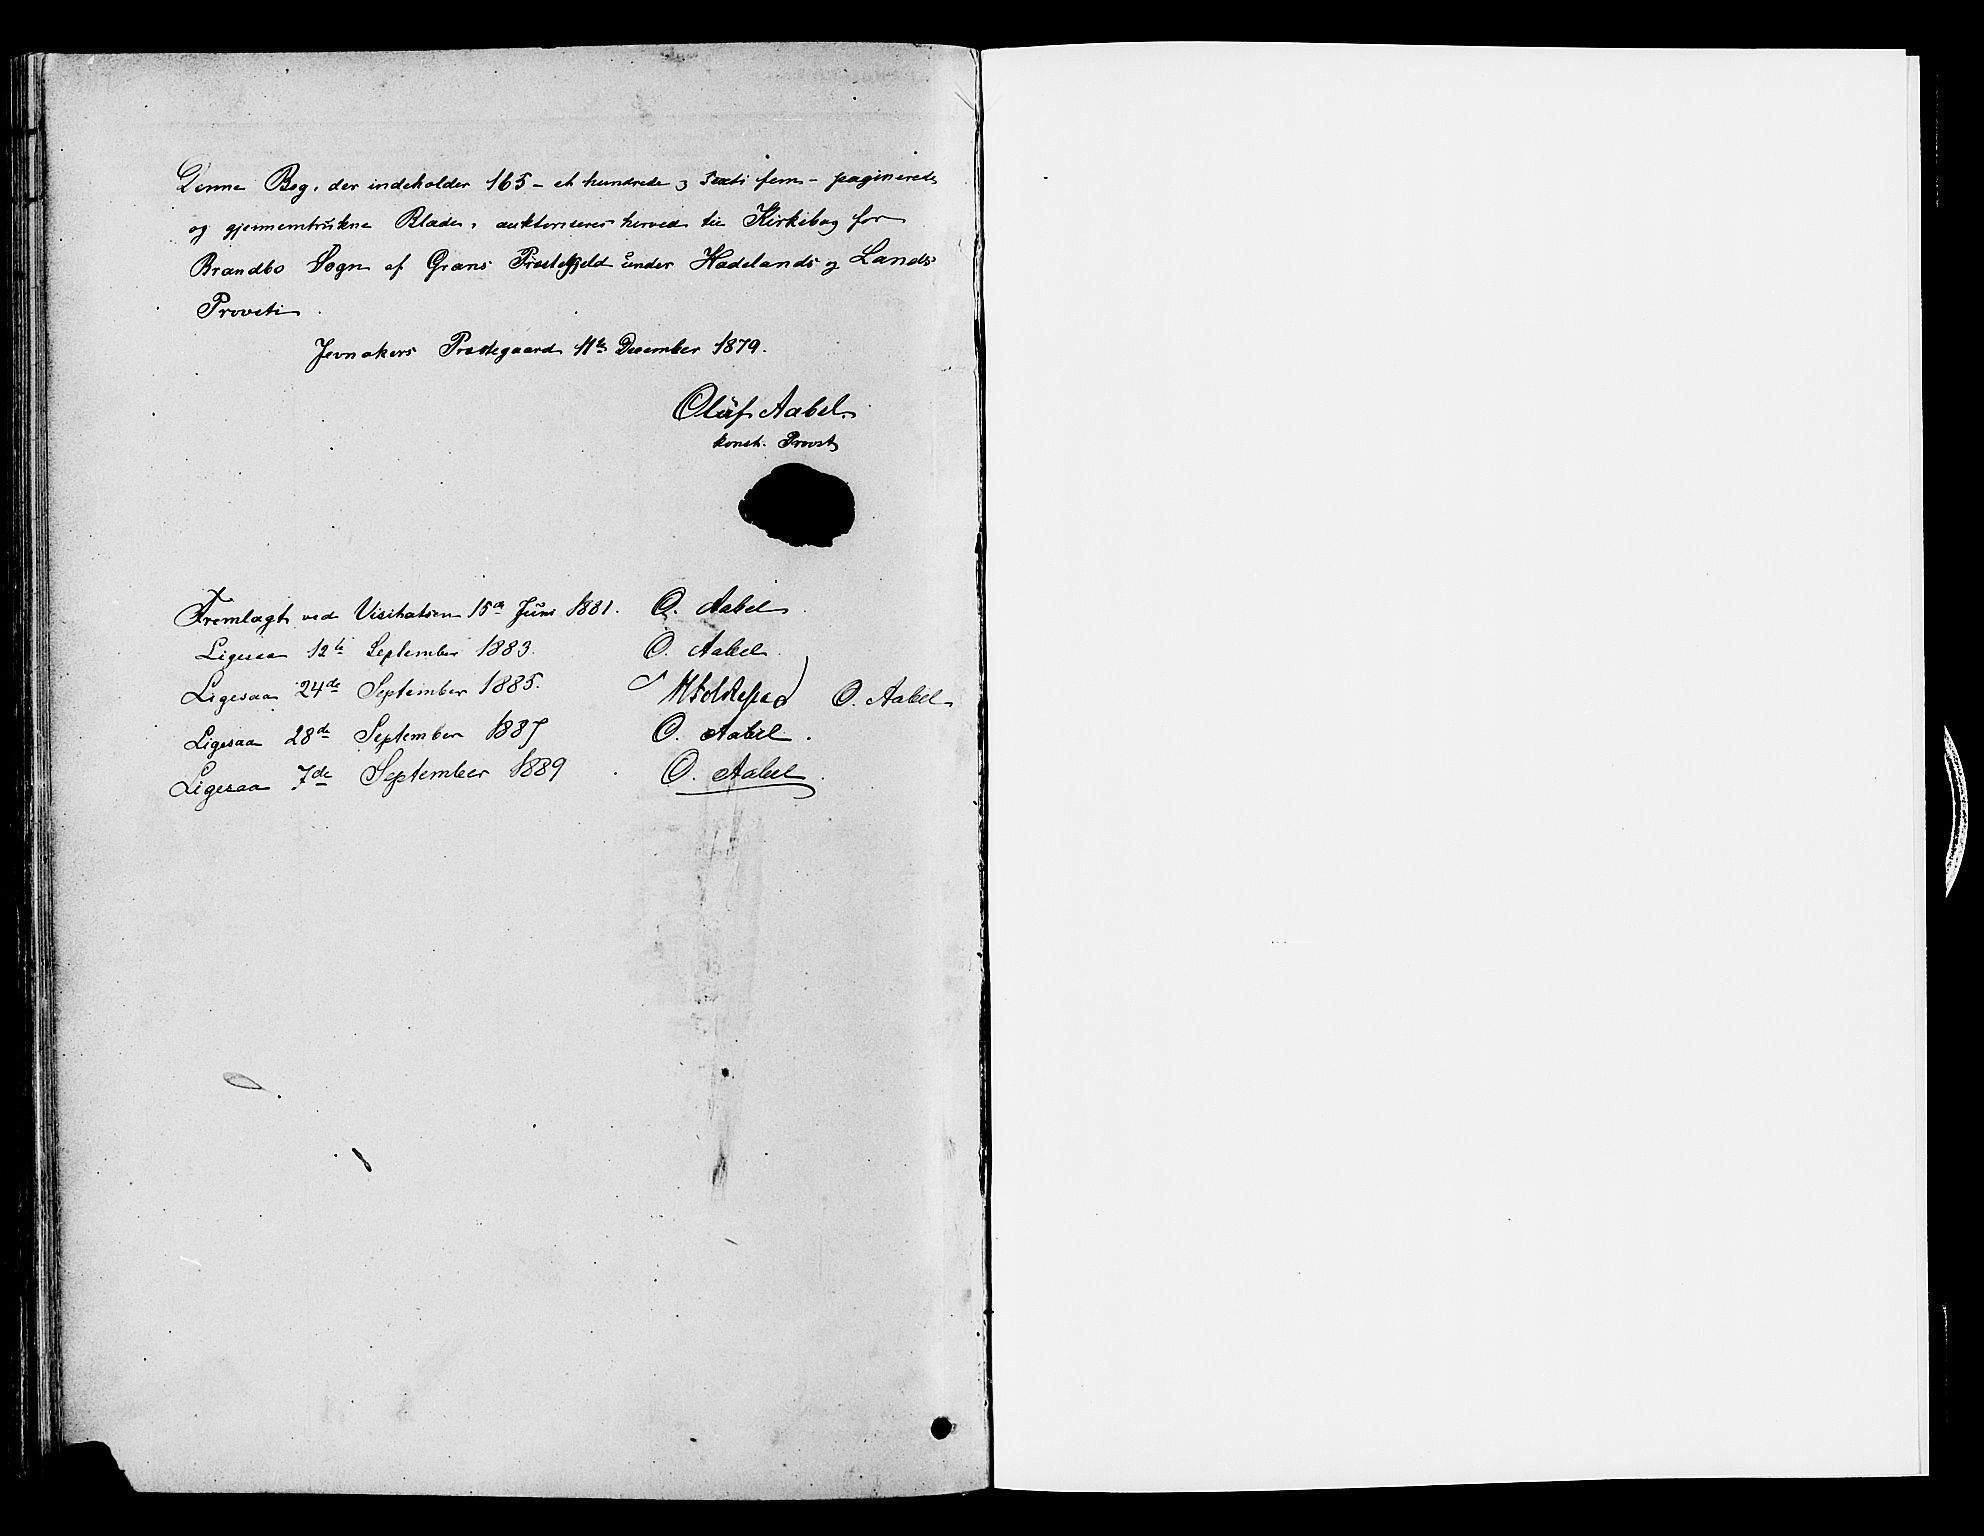 Denne Bog, der indeholder 165 - et hundrede og Sexti fem - paginerede
og gjennemtrukne Blade, auktoriseres herved til Kirkebog for
Brandbo Sogn af Grans Præstegjeld under Hadelands og Lands
Provsti.
Jevnakers Præstegaard 11te December 1879.
Oluf Aabel.
konst. Provst
Fremlagt ved Visitatsen 15de Juni 1881. O. Aabel.
Ligesaa 12te September 1883. O. Aabel.
Ligesaa 24de September 1885. O. Aabel
Ligesaa 28de September 1887 O. Aabel.
Ligesaa 7de September 1889 O. Aabel.